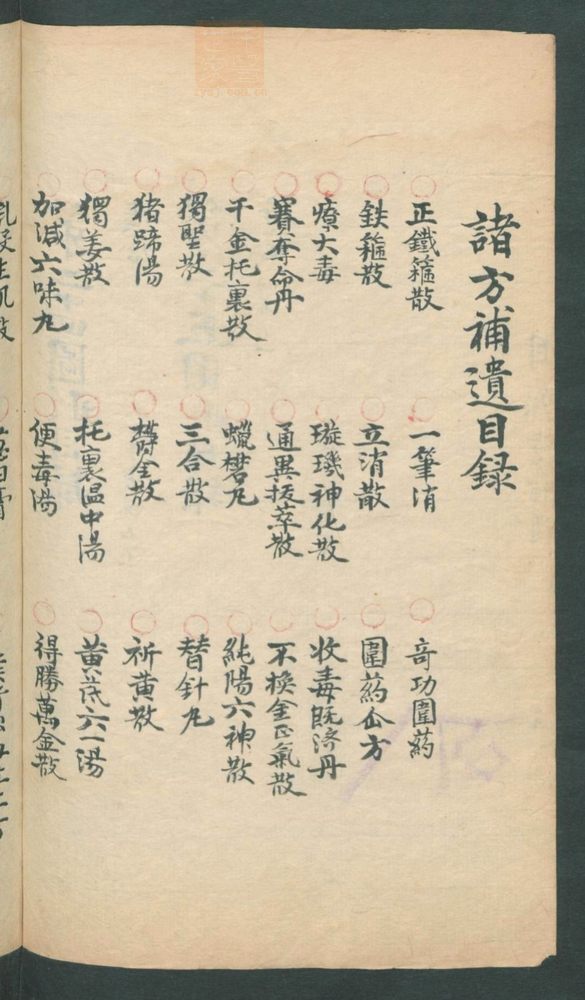 諸方補遺目録
正鐵箍散 一筆消 奇功圍葯
鉄箍散 立消散 圍葯仝方
療大毒 璇璣神化散 收毒既濟丹
賽奪命丹 通異拔萃散 不換金正氣散
千金托裏散 蠟礬丸 純陽六神散
獨聖散 三合散 替針丸
猪蹄湯 欝金散 祈黄散
獨姜散 托裏温中湯 黄茋六一湯
加減六味丸 便毒湯 得勝萬金散